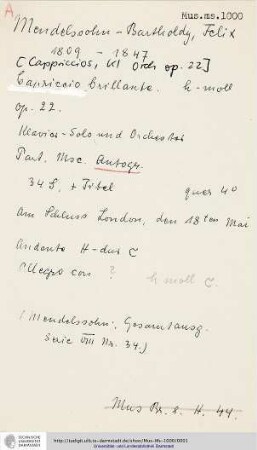 A
Mus.ms.1000
Mendelssohn-Bartholdy, Felix
1809 - 1847
[Cappriccios, Kl Orch op. 22]
Capriccio brillante. h-moll
op. 22.
Klavier-Solo und Orchester
Part. Msc. Autogr.
34 S. + Titel quer 4°
Am Schluss London, den 18ten Mai
Andante H-dur C
Allegro con ? h moll C.
(Mendelssohn: Gesamtausg.
Serie VIII Nr. 34.)
Mus
44.
Universitäts- und Landesbibliothek Darmstadt